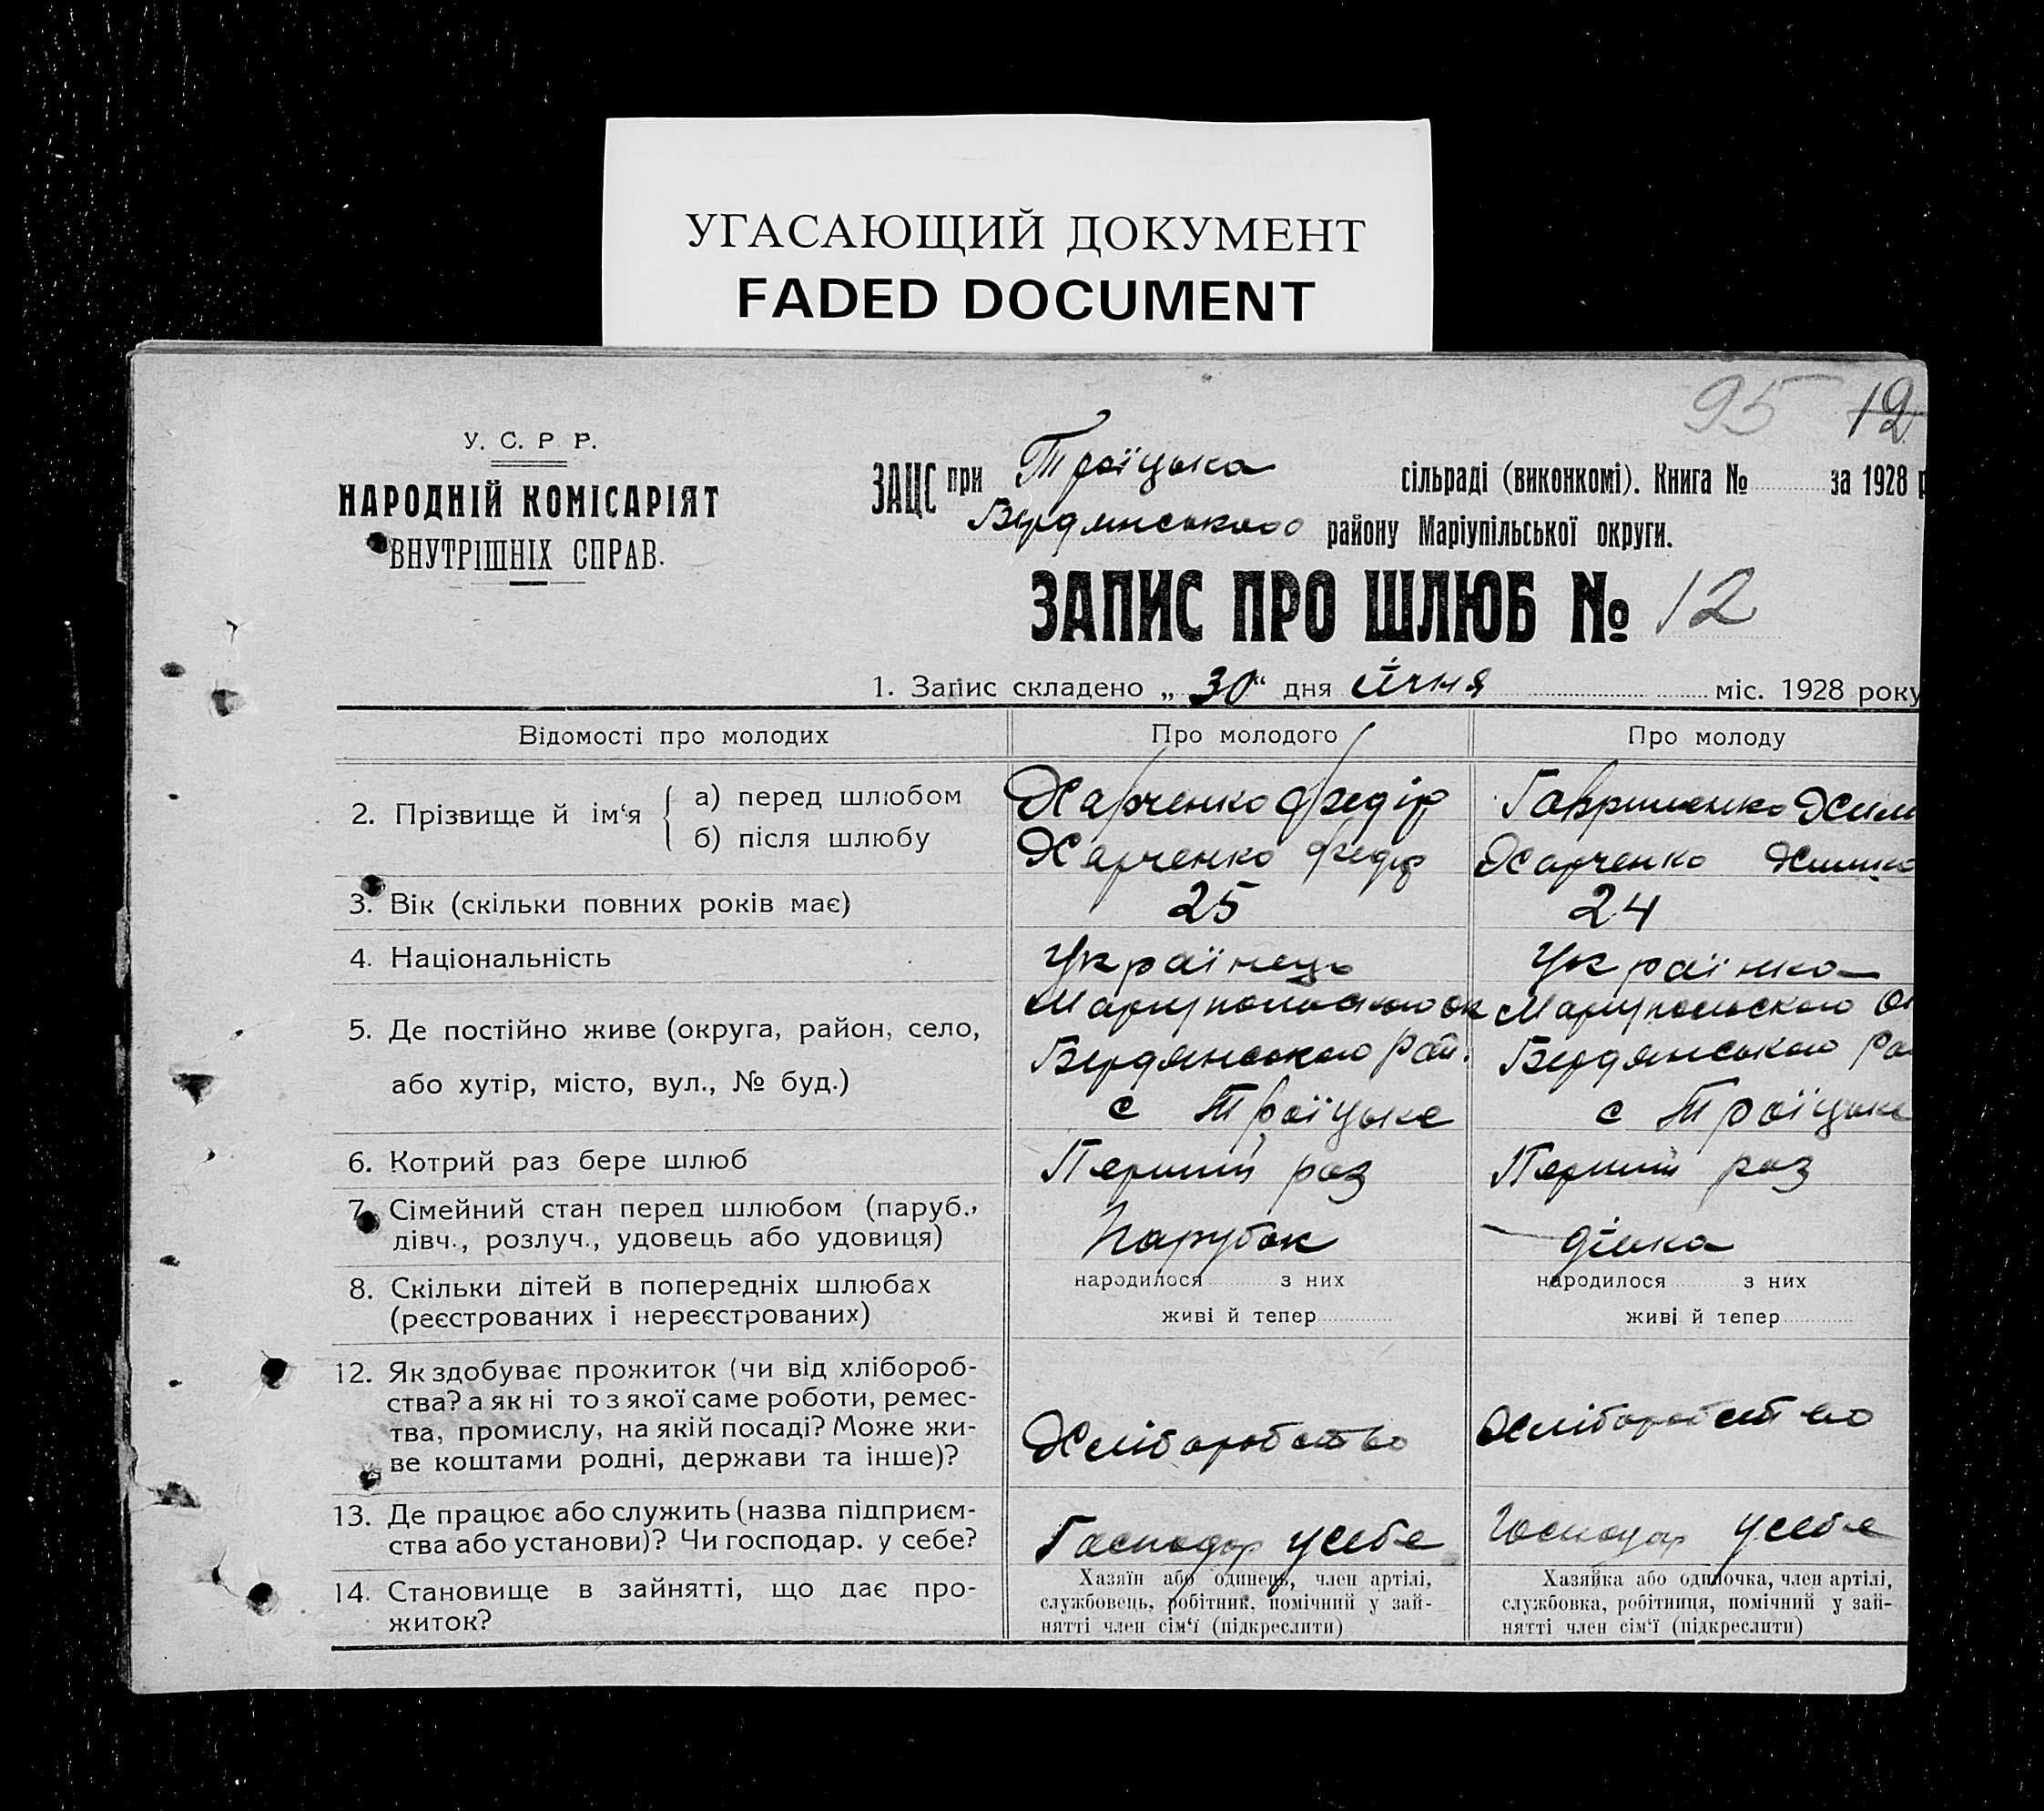 УГАСАЮЩИЙ ДОКУМЕНТ
FADED DOCUMENT
95 12
У. С. Р Р.
НАРОДНІЙ КОМІСАРІЯТ
ВНУТРІШНІХ СПРАВ.
ЗАЦС при Троїцька сільраді (виконкомі). Книга № за 1928 р
Бердянського району Маріупільської округи.
ЗАПИС ПРО ШЛЮБ № 12
1. Запис складено „ 30 “ дня січня міс. 1928 року
Відомості про молодих
Про молодого
Про молоду
2. Прізвище й ім‘я
а) перед шлюбом
Харченко Федір
б) після шлюбу
Харченко Федір
Харченко
3. Вік (скільки повних років має)
25
24
4. Національність
Українець
Українка
5. Де постійно живе (округа, район, село,
або хутір, місто, вул., № буд.)
Бердянського Рай.
с Троїцьке
Бердянського
с Троїцьке
6. Котрий раз бере шлюб
Перший раз
Перший раз
7. Сімейний стан перед шлюбом (паруб.,
дівч., розлуч., удовець або удовиця)
Парубок
дівка
8. Скільки дітей в попередніх шлюбах
(реєстрованих і нереєстрованих)
народилося з них
живі й тепер
народилося з них
живі й тепер
12. Як здобуває прожиток (чи від хлібороб-
ства? а як ні то з якої саме роботи, ремес-
тва, промислу, на якій посаді? Може жи-
ве коштами родні, держави та інше)?
Хліборобство
Хліборобство
13. Де працює або служить (назва підприєм-
ства або установи)? Чи господар. у себе?
Господар усебе
Господар усебе
14. Становище в зайнятті, що дає про-
житок?
Хазяїн або одинець, член артілі,
службовець, робітник, помічний у зай-
нятті член сім‘ї (підкреслити)
Хазяйка або одиночка, член артілі,
службовка, робітниця, помічний у зай-
нятті член сім‘ї (підкреслити)